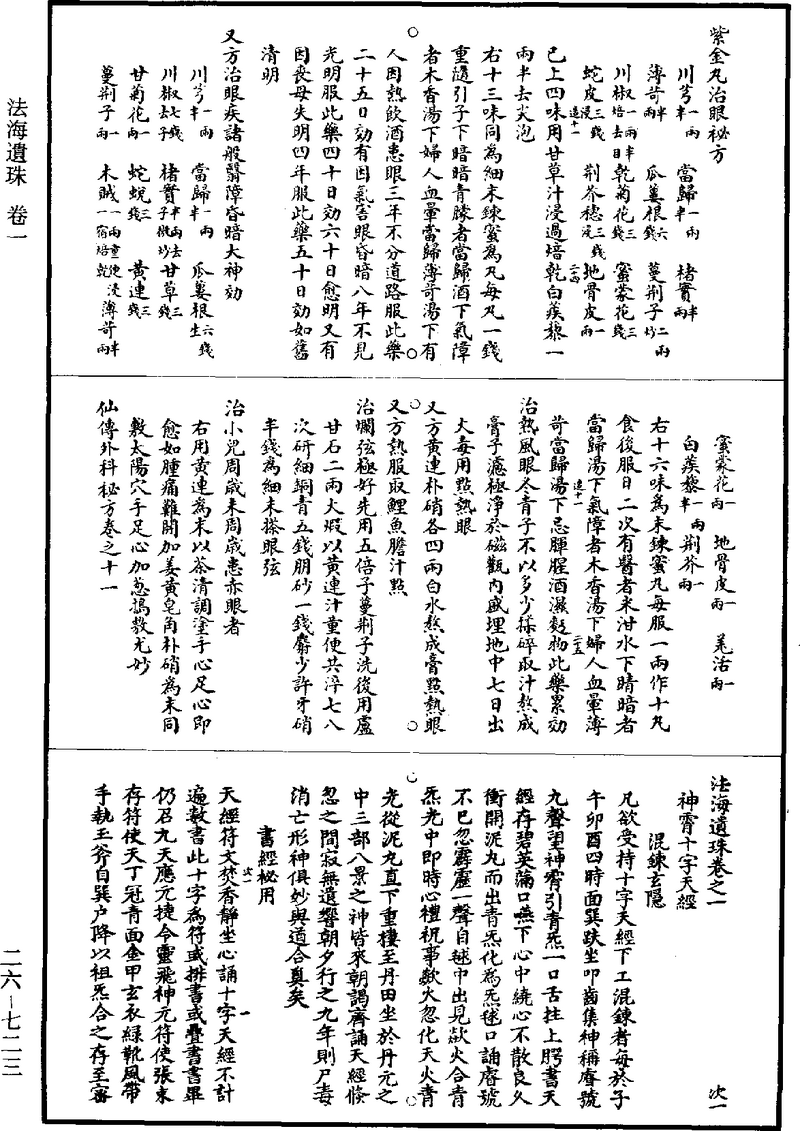 紫金丸治眼秘方
川芎一兩半 當歸一兩半 楮實半兩
薄荷半兩 瓜蔞根六錢 蔓荆子二兩炒
川椒一兩半焙去目 乾菊花三錢 蜜蒙花三錢
蛇皮三錢浸 荆芥穗三錢浸 地骨皮一兩
已上四味用甘草汁浸過焙乾白蒺藜一
兩半去尖泡
右十三味同為細末鍊蜜為丸每丸一錢
重隨引子下暗暗青矇者當歸酒下氣障
者木香湯下婦人血暈當歸薄荷湯下有
人因熱飲酒患眼三年不分道路服此藥
二十五日効有因氣害眼昏暗八年不見
光明服此藥四十日効六十日愈明又有
因喪母失明四年服此藥五十日効如舊
清明
又方治眼疾諸般翳障昏暗大神効
川芎一兩半 當歸一兩半 瓜蔞根六錢生
川椒七錢去子 楮實半兩去子微炒 甘草三錢
甘菊花一兩 蛇蛻三錢 黃連三錢
蔓荆子一兩 木賊一兩童便浸一宿焙乾 薄荷半兩
蜜蒙花一兩 地骨皮一兩 羗活一兩
白蒺藜一兩半 荆芥一兩
右十六味為末鍊蜜丸每服一兩作十丸
食後服日二次有醫者米泔水下睛暗者
當歸湯下氣障者木香湯下婦人血暈薄
荷當歸湯下忌腪腥酒滋麪物此藥累効
治熱風眼冬青子不以多少搽碎取汁熬成
膏子濾極淨於磁觀內盛埋地中七日出
火毒用點熱眼
又方黃連朴硝各四兩白水熬成膏點熱眼
又方熱服取鯉魚膽汁點
治爛弦極好先用五倍子蔓荆子洗後用盧
甘石二兩火煆以黃連汁童便共淬七八
次研細銅青五錢朋砂一錢麝少許牙硝
半錢為細末搽眼弦
治小兒周歲未周歲患赤眼者
右用黃連為末以茶清調塗手心足心即
愈如腫痛難開加姜黃皂角朴硝為末同
敷太陽穴手足心加葱搗敷尤妙
仙傳外科秘方卷之十一
法海遺珠卷之一 次一
神霄十字天經
混鍊玄隱
凡欲受持十字天經下工混鍊者每於子
午卯酉四時面巽趺坐叩齒集神稱睿號
九聲望神霄引青炁一口舌拄上腭書天
經存碧英滿口嚥下心中繞心不散良久
衝開泥丸而出青炁化為炁毬口誦睿號
不已忽霹靂一聲自毬中出見歘火合青
炁光中即時心禮祝事歘火忽化天火青
光從泥丸直下重樓至丹田坐於丹元之
中三部八景之神皆來朝謁齊誦天經倏
忽之間寂無遺響朝夕行之九年則尸毒
消亡形神俱妙與道合真矣
書經秘用
天經符文焚香靜坐心誦十字天經不計
遍數書此十字為符或排書或疊書書畢
仍召九天應元捷令靈飛神元符使張束
存符使天丁冠青面金甲玄衣綠靴風帶
手執玉斧自巽户降以祖炁合之存至審
法海遺珠 卷一
二六—七二三